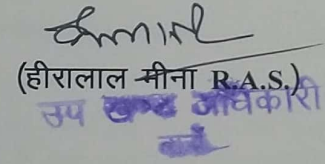 (हीरालाल मीना R.A.S.)
उप खण्ड अधिकारी